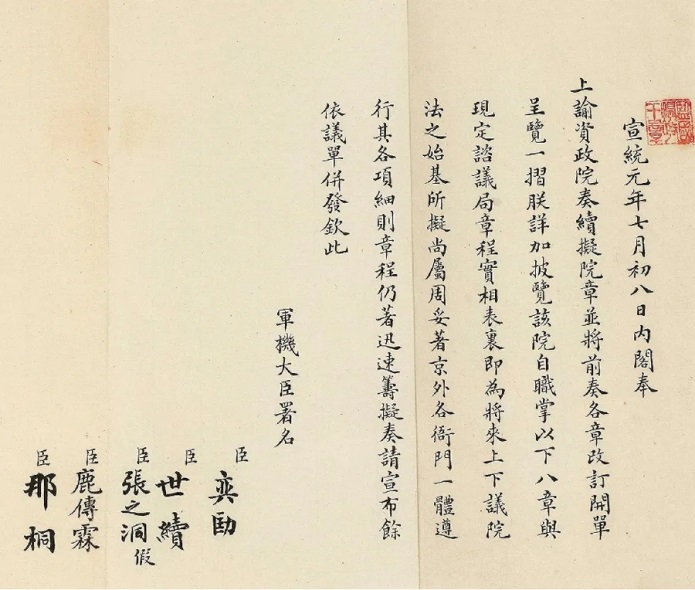 宣統元年七月初八日內閣奉
上諭資政院奏續擬院章並將前奏各章改訂開單
呈覽一摺朕詳加披覽該院自職掌以下八章與
現定諮議局章程實相表裏即為將來上下議院
法之始基所擬尚屬周妥著京外各衙門一體遵
行其各項細則章程仍著迅速籌擬奏請宣布餘
依議單併發欽此
軍機大臣署名
臣奕劻
臣世續
臣張之洞假
臣鹿傳霖
臣那桐